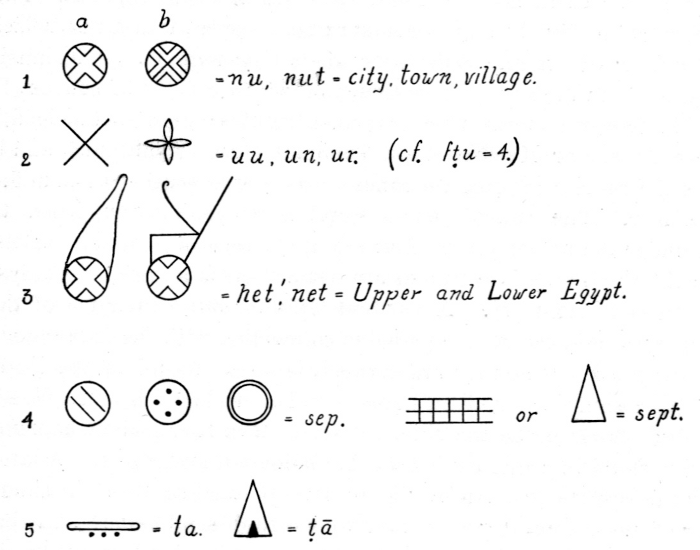 a b
1 = nu, nut = city, town, village.
2 = uu, un, ur. (cf. fṭu = 4.)
3 = het', net = Upper and Lower Egypt.
4 = sep. or = sept.
5 = ta. = ṭā